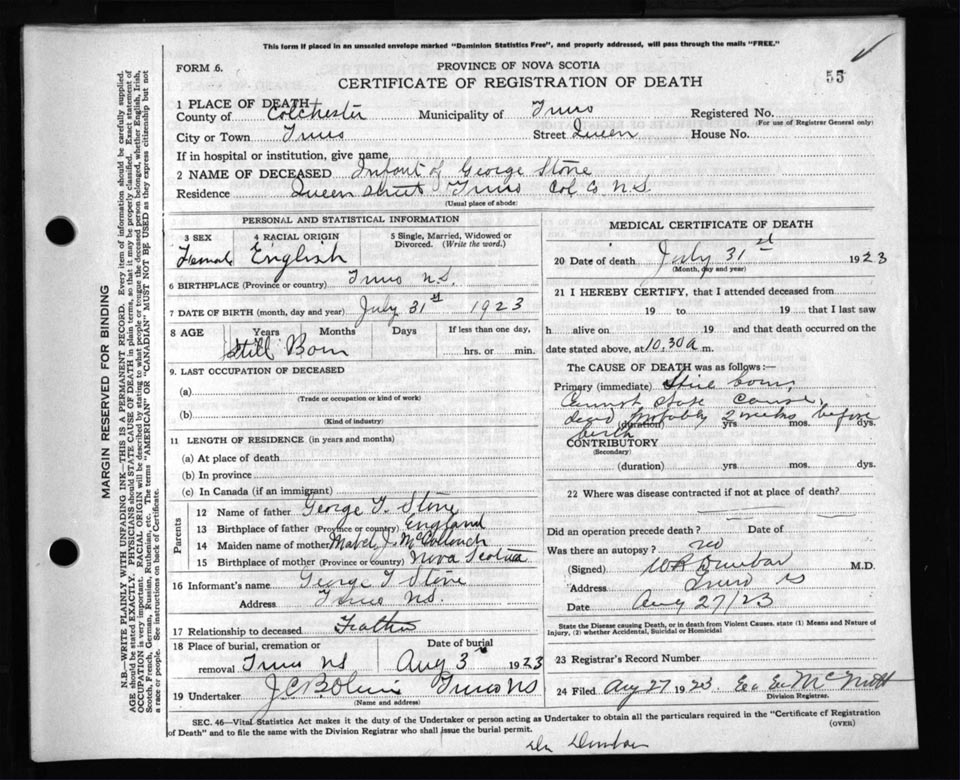 This form if placed in an unsealed envelope marked "Dominion Statistics Free", and properly addressed, will pass through the mails "FREE."
FORM 6.
PROVINCE OF NOVA SCOTIA
CERTIFICATE OF REGISTRATION OF DEATH
55
1 PLACE OF DEATH
County of Colchester Municipality of Truro Registered No.
(For use of Registrar General only)
City or Town Truro Street Queen House No.
If in hospital or institution, give name
2 NAME OF DECEASED Infant of George Stone
Residence Queen Street Truro Col Co N.S.
(Usual place of abode)
PERSONAL AND STATISTICAL INFORMATION
3 SEX 4 RACIAL ORIGIN 5 Single, Married, Widowed or Divorced. (Write the word.)
Female English
6 BIRTHPLACE (Province or country) Truro N.S.
7 DATE OF BIRTH (month, day and year) July 31st 1923
8 AGE Years Months Days If less than one day,
Still Born hrs. or min.
9. LAST OCCUPATION OF DECEASED
(a)
(Trade or occupation or kind of work)
(b)
(Kind of industry)
11 LENGTH OF RESIDENCE (in years and months)
(a) At place of death
(b) In province
(c) In Canada (if an immigrant)
Parents
12 Name of father George T. Stone
13 Birthplace of father (Province or country) England
14 Maiden name of mother Mabel J. McCollouch
15 Birthplace of mother (Province or country) Nova Scotia
16 Informant's name George T Stone
Address Truro N.S.
17 Relationship to deceased Father
18 Place of burial, cremation or Date of burial
removal Truro NS Aug 3 1923
19 Undertaker Truro NS
(Name and address)
MEDICAL CERTIFICATE OF DEATH
20 Date of death July 31st 1923
(Month, day and year)
21 I HEREBY CERTIFY, that I attended deceased from
19 to 19 that I last saw
h alive on 19 and that death occurred on the
date stated above, at 10,30 a m.
The CAUSE OF DEATH was as follows:—
Primary (immediate) Still born,
Cannot state cause,
dead probably 2 weeks before
(duration) yrs mos. dys.
birth
CONTRIBUTORY
(Secondary)
(duration) yrs mos. dys.
22 Where was disease contracted if not at place of death?
Did an operation precede death? Date of
Was there an autopsy? no
(Signed) W R Dunbar M.D.
Address Truro NS
Date Aug 27/23
State the Disease causing Death, or in death from Violent Causes. state (1) Means and Nature of Injury, (2) whether Accidental, Suicidal or Homicidal
23 Registrar's Record Number
24 Filed Aug 27 1923. McNutt
Division Registrar.
SEC. 46—Vital Statistics Act makes it the duty of the Undertaker or person acting as Undertaker to obtain all the particulars required in the "Certificate of Registration
of Death" and to file the same with the Division Registrar who shall issue the burial permit.
(OVER)
Dr Dunbar
MARGIN RESERVED FOR BINDING
N.B.—WRITE PLAINLY WITH UNFADING INK—THIS IS A PERMANENT RECORD. Every item of information should be carefully supplied.
AGE should be stated EXACTLY. PHYSICIANS should STATE CAUSE OF DEATH in plain terms, so that it may be properly classified. Exact statement of
OCCUPATION is very important. RACIAL ORIGIN will be described by stating to what people or tongue the deceased person belonged, whether English, Irish,
Scotch, French, German, Russian, Ruthenian, etc. The terms "AMERICAN" OR "CANADIAN" MUST NOT BE USED as they express citizenship but not
a race or people. See instructions on back of Certificate.